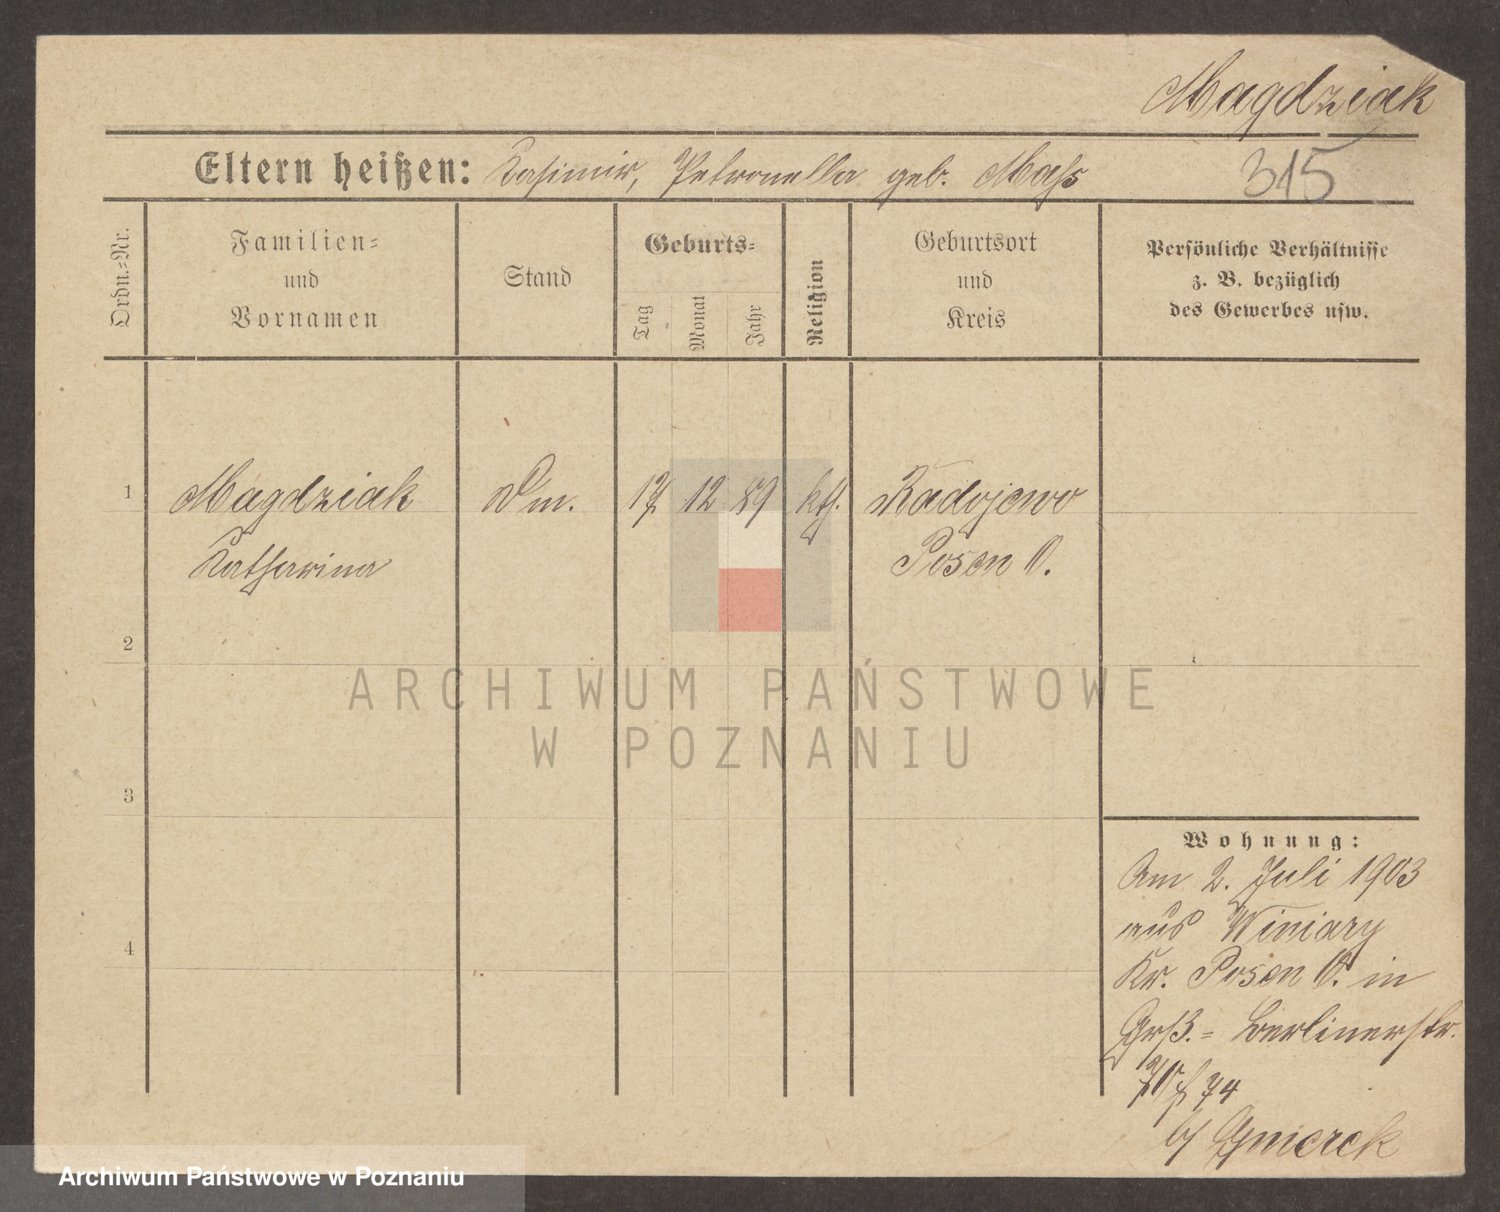 Magdziak
315
Eltern heißen: Kasimir, Petronella geb. Mass
Ordn.-Nr.
Familien-
und
Vornamen
Stand
Geburts-
Tag
Monat
Jahr
Religion
Geburtsort
und
Kreis
Persönliche Verhältnisse
z. B. bezüglich
des Gewerbes usw.
1
Magdziak
Katharina
Dm.
17
12
89
kth.
Radojewo
Posen O.
2
3
4
Wohnung:
Am 2. Juli 1903
aus Winiary
Kr. Posen O. in
Grß.- Berlinerstr.
74
b/
ARCHIWUM PAŃSTWOWE
W POZNANIU
Archiwum Państwowe w Poznaniu